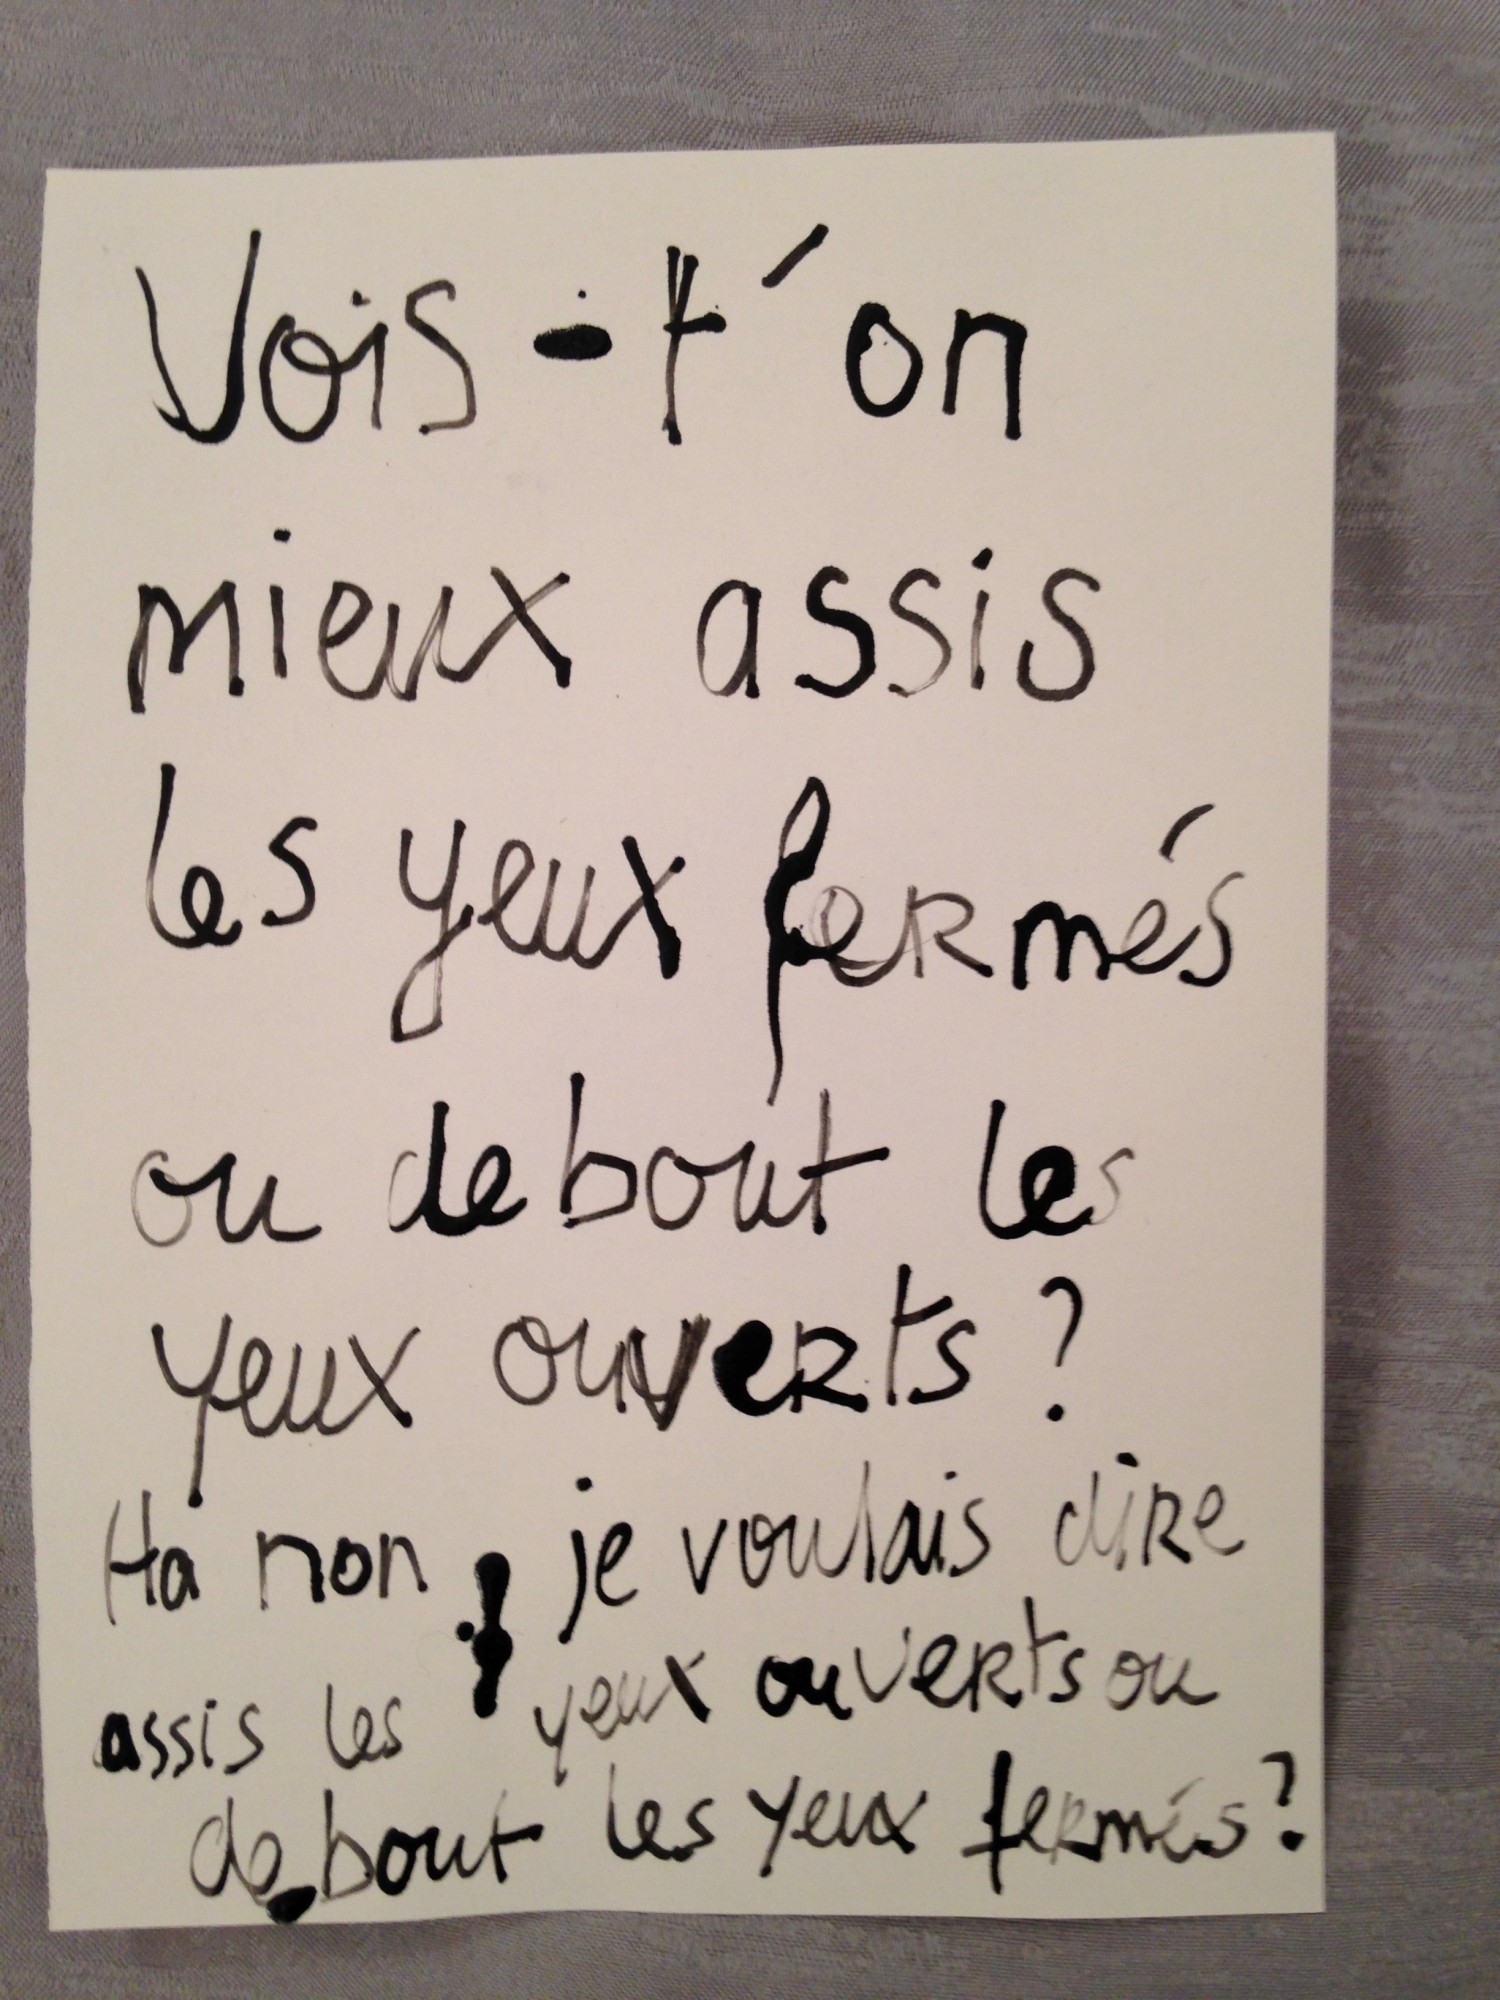 Vois-t'on
mieux assis
les yeux fermés
ou debout les
yeux ouverts ?
Ha non, je voulais dire
assis les yeux ouverts ou
debout les yeux fermés ?